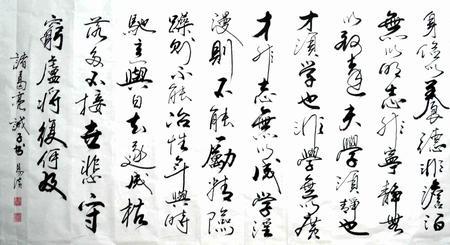 身儉以養德非澹泊
無以明志非寧靜無
以致遠夫學須靜也
才須学也非學無以廣
才非志無以成學淫
漫則不能勵精險
躁則不能冶性年與時
馳意與日去遂成枯
落多不接世悲守
窮廬將復何及
諸葛亮誡子書